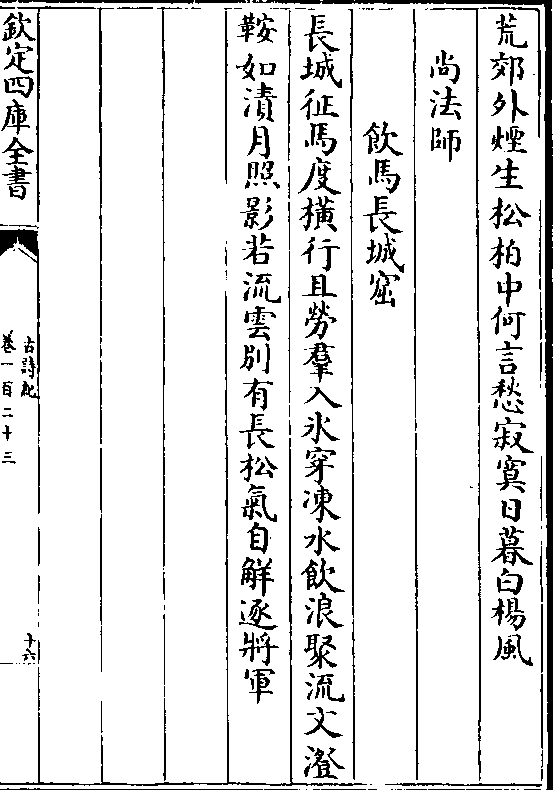 荒郊外煙生松柏中何言愁寂寞日暮白楊風
尚法師
飲馬長城窟
長城征馬度橫行且勞羣入氷穿凍水飲浪聚流文澄
鞍如漬月照影若流雲別有長松氣自解逐將軍
欽定四庫全書
古詩紀
卷一百二十三
十六